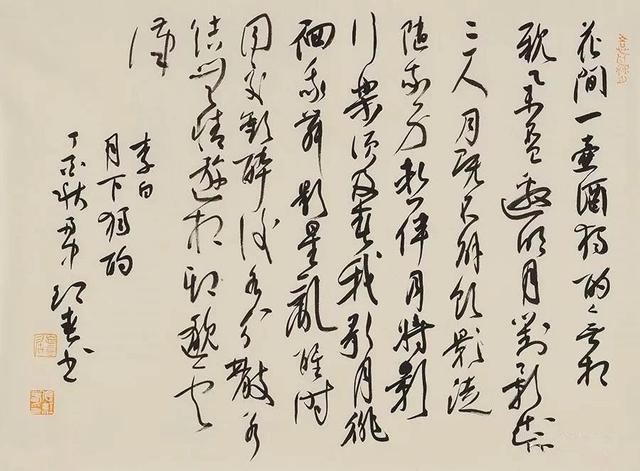 花間一壺酒獨酌無相
親舉杯邀明月對影成
三人月既不解飲影徒
隨我身暫伴月將影
行樂須及春我歌月徘
徊我舞影零亂醒時
同交歡醉後各分散永
結無情遊相期邈雲
漢
李白
月下獨酌
丁酉秋春書